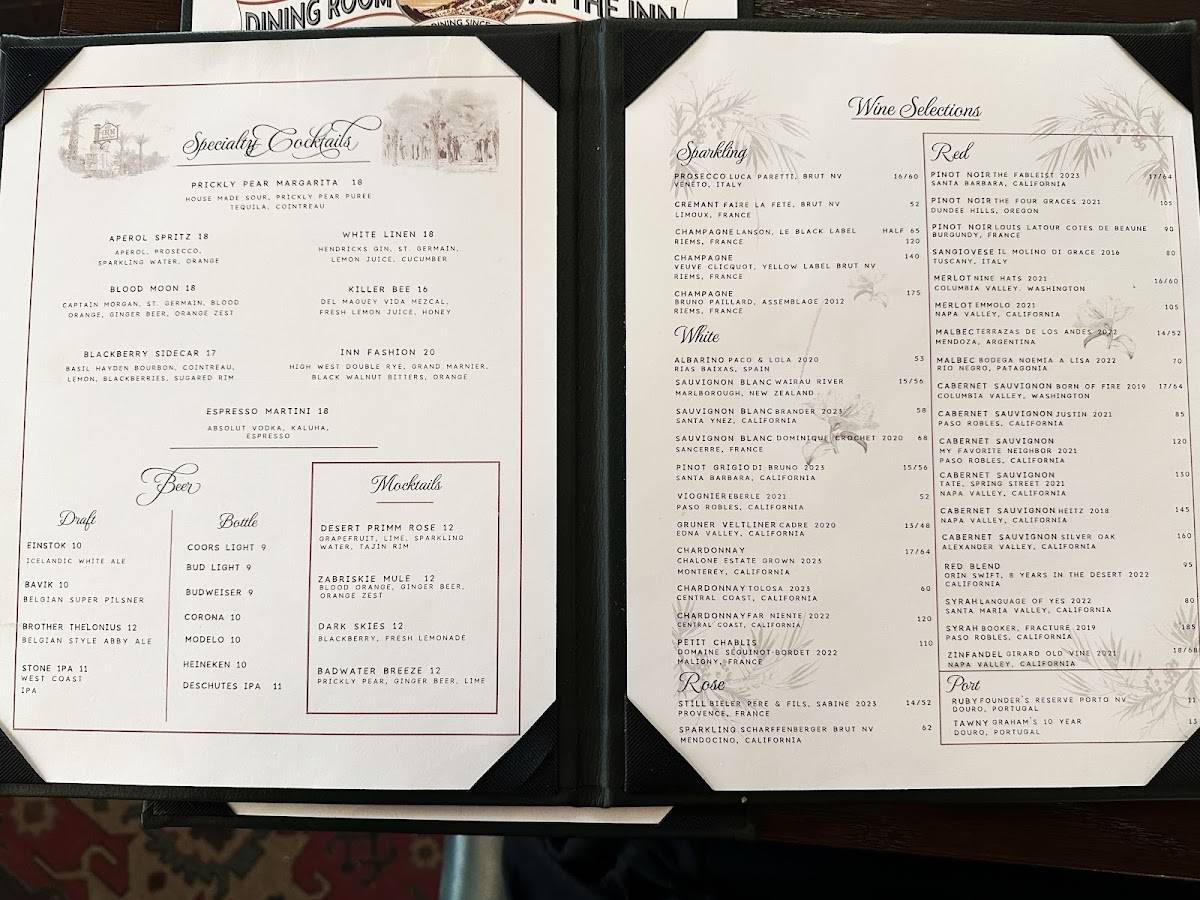 DINING ROOM AT THE INN
DINING SINCE
INN
Specialty Cocktails
PRICKLY PEAR MARGARITA 18
HOUSE MADE SOUR, PRICKLY PEAR PUREE
TEQUILA, COINTREAU
APEROL SPRITZ 18
APEROL, PROSECCO,
SPARKLING WATER, ORANGE
WHITE LINEN 18
HENDRICKS GIN, ST. GERMAIN,
LEMON JUICE, CUCUMBER
BLOOD MOON 18
CAPTAIN MORGAN, ST. GERMAIN, BLOOD
ORANGE, GINGER BEER, ORANGE ZEST
KILLER BEE 16
DEL MAGUEY VIDA MEZCAL,
FRESH LEMON JUICE, HONEY
BLACKBERRY SIDECAR 17
BASIL HAYDEN BOURBON, COINTREAU,
LEMON, BLACKBERRIES, SUGARED RIM
INN FASHION 20
HIGH WEST DOUBLE RYE, GRAND MARNIER,
BLACK WALNUT BITTERS, ORANGE
ESPRESSO MARTINI 18
ABSOLUT VODKA, KALUHA,
ESPRESSO
Beer
Draft
EINSTOK 10
ICELANDIC WHITE ALE
BAVIK 10
BELGIAN SUPER PILSNER
BROTHER THELONIUS 12
BELGIAN STYLE ABBY ALE
STONE IPA 11
WEST COAST
IPA
Bottle
COORS LIGHT 9
BUD LIGHT 9
BUDWEISER 9
CORONA 10
MODELO 10
HEINEKEN 10
DESCHUTES IPA 11
Mocktails
DESERT PRIMM ROSE 12
GRAPEFRUIT, LIME, SPARKLING
WATER, TAJIN RIM
ZABRISKIE MULE 12
BLOOD ORANGE, GINGER BEER,
ORANGE ZEST
DARK SKIES 12
BLACKBERRY, FRESH LEMONADE
BADWATER BREEZE 12
PRICKLY PEAR, GINGER BEER, LIME
Wine Selections
Sparkling
PROSECCO LUCA PARETTI, BRUT NV 16/60
VENETO, ITALY
CREMANT FAIRE LA FETE, BRUT NV 52
LIMOUX, FRANCE
CHAMPAGNE LANSON, LE BLACK LABEL HALF 65
RIEMS, FRANCE 120
CHAMPAGNE 140
VEUVE CLICQUOT, YELLOW LABEL BRUT NV
RIEMS, FRANCE
CHAMPAGNE 175
BRUNO PAILLARD, ASSEMBLAGE 2012
RIEMS, FRANCE
White
ALBARINO PACO & LOLA 2020 53
RIAS BAIXAS, SPAIN
SAUVIGNON BLANC WAIRAU RIVER 15/56
MARLBOROUGH, NEW ZEALAND
SAUVIGNON BLANC BRANDER 2023 58
SANTA YNEZ, CALIFORNIA
SAUVIGNON BLANC DOMINIQUE CROCHET 2020 68
SANCERRE, FRANCE
PINOT GRIGIO DI BRUNO 2023 15/56
SANTA BARBARA, CALIFORNIA
VIOGNIER EBERLE 2021 52
PASO ROBLES, CALIFORNIA
GRUNER VELTLINER CADRE 2020 13/48
EDNA VALLEY, CALIFORNIA
CHARDONNAY 17/64
CHALONE ESTATE GROWN 2023
MONTEREY, CALIFORNIA
CHARDONNAY TOLOSA 2023 60
CENTRAL COAST, CALIFORNIA
CHARDONNAY FAR NIENTE 2022 120
CENTRAL COAST, CALIFORNIA
PETIT CHABLIS 110
DOMAINE SEGUINOT-BORDET 2022
MALIGNY, FRANCE
Rose
STILL BIELER PERE & FILS, SABINE 2023 14/52
PROVENCE, FRANCE
SPARKLING SCHARFFENBERGER BRUT NV 62
MENDOCINO, CALIFORNIA
Red
PINOT NOIR THE FABLEIST 2023 17/64
SANTA BARBARA, CALIFORNIA
PINOT NOIR THE FOUR GRACES 2021 105
DUNDEE HILLS, OREGON
PINOT NOIR LOUIS LATOUR COTES DE BEAUNE 90
BURGUNDY, FRANCE
SANGIOVESE IL MOLINO DI GRACE 2016 80
TUSCANY, ITALY
MERLOT NINE HATS 2021 16/60
COLUMBIA VALLEY, WASHINGTON
MERLOT EMMOLO 2021 105
NAPA VALLEY, CALIFORNIA
MALBEC TERRAZAS DE LOS ANDES 2022 14/52
MENDOZA, ARGENTINA
MALBEC BODEGA NOEMIA A LISA 2022 70
RIO NEGRO, PATAGONIA
CABERNET SAUVIGNON BORN OF FIRE 2019 17/64
COLUMBIA VALLEY, WASHINGTON
CABERNET SAUVIGNON JUSTIN 2021 85
PASO ROBLES, CALIFORNIA
CABERNET SAUVIGNON 120
MY FAVORITE NEIGHBOR 2021
PASO ROBLES, CALIFORNIA
CABERNET SAUVIGNON 130
TATE, SPRING STREET 2021
NAPA VALLEY, CALIFORNIA
CABERNET SAUVIGNON HEITZ 2018 145
NAPA VALLEY, CALIFORNIA
CABERNET SAUVIGNON SILVER OAK 160
ALEXANDER VALLEY, CALIFORNIA
RED BLEND 95
ORIN SWIFT, 8 YEARS IN THE DESERT 2022
CALIFORNIA
SYRAH LANGUAGE OF YES 2022 80
SANTA MARIA VALLEY, CALIFORNIA
SYRAH BOOKER, FRACTURE 2019 185
PASO ROBLES, CALIFORNIA
ZINFANDEL GIRARD OLD VINE 2021 18/68
NAPA VALLEY, CALIFORNIA
Port
RUBY FOUNDER'S RESERVE PORTO NV 11
DOURO, PORTUGAL
TAWNY GRAHAM'S 10 YEAR 13
DOURO, PORTUGAL